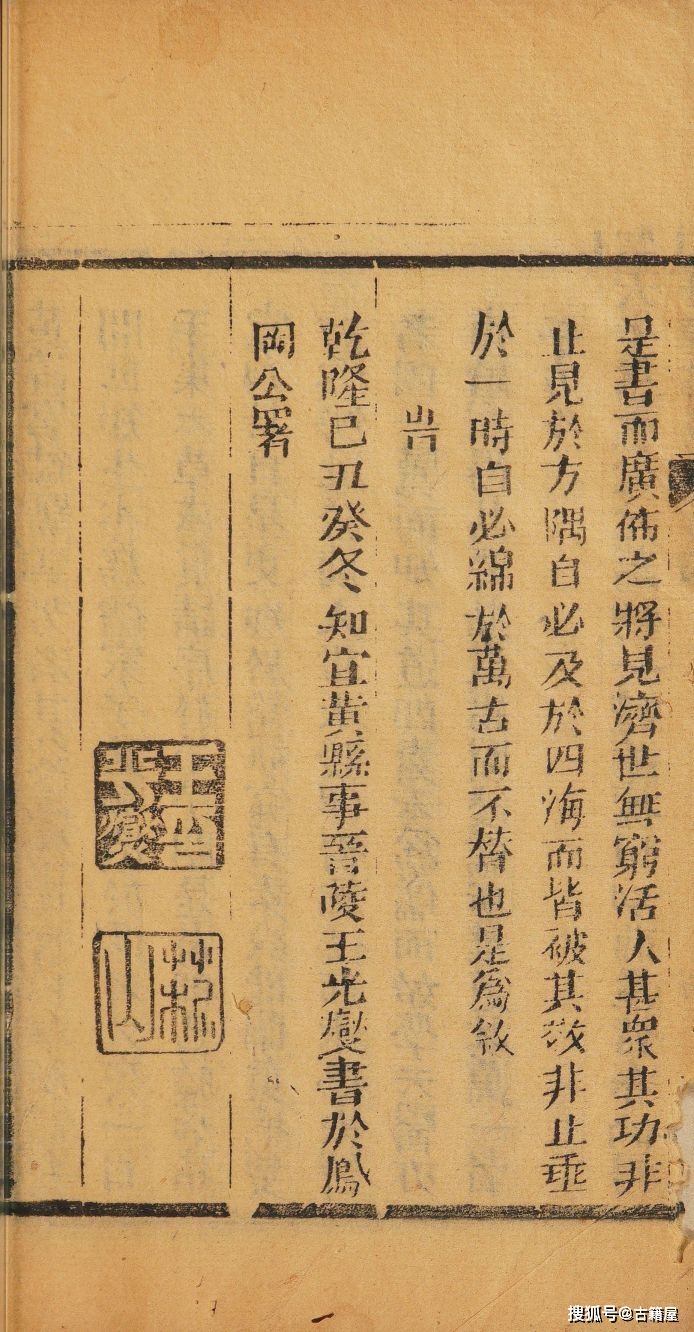 是書而廣佈之將見濟世無窮活人甚衆其功非
止見於方隅自必及於四海而皆被其效非止垂
於一時自必綿於萬古而不替也是爲敘
旹
乾隆己丑癸冬知宜黃縣事晉陵王光燮書於鳳
岡公署
搜狐号@古籍屋